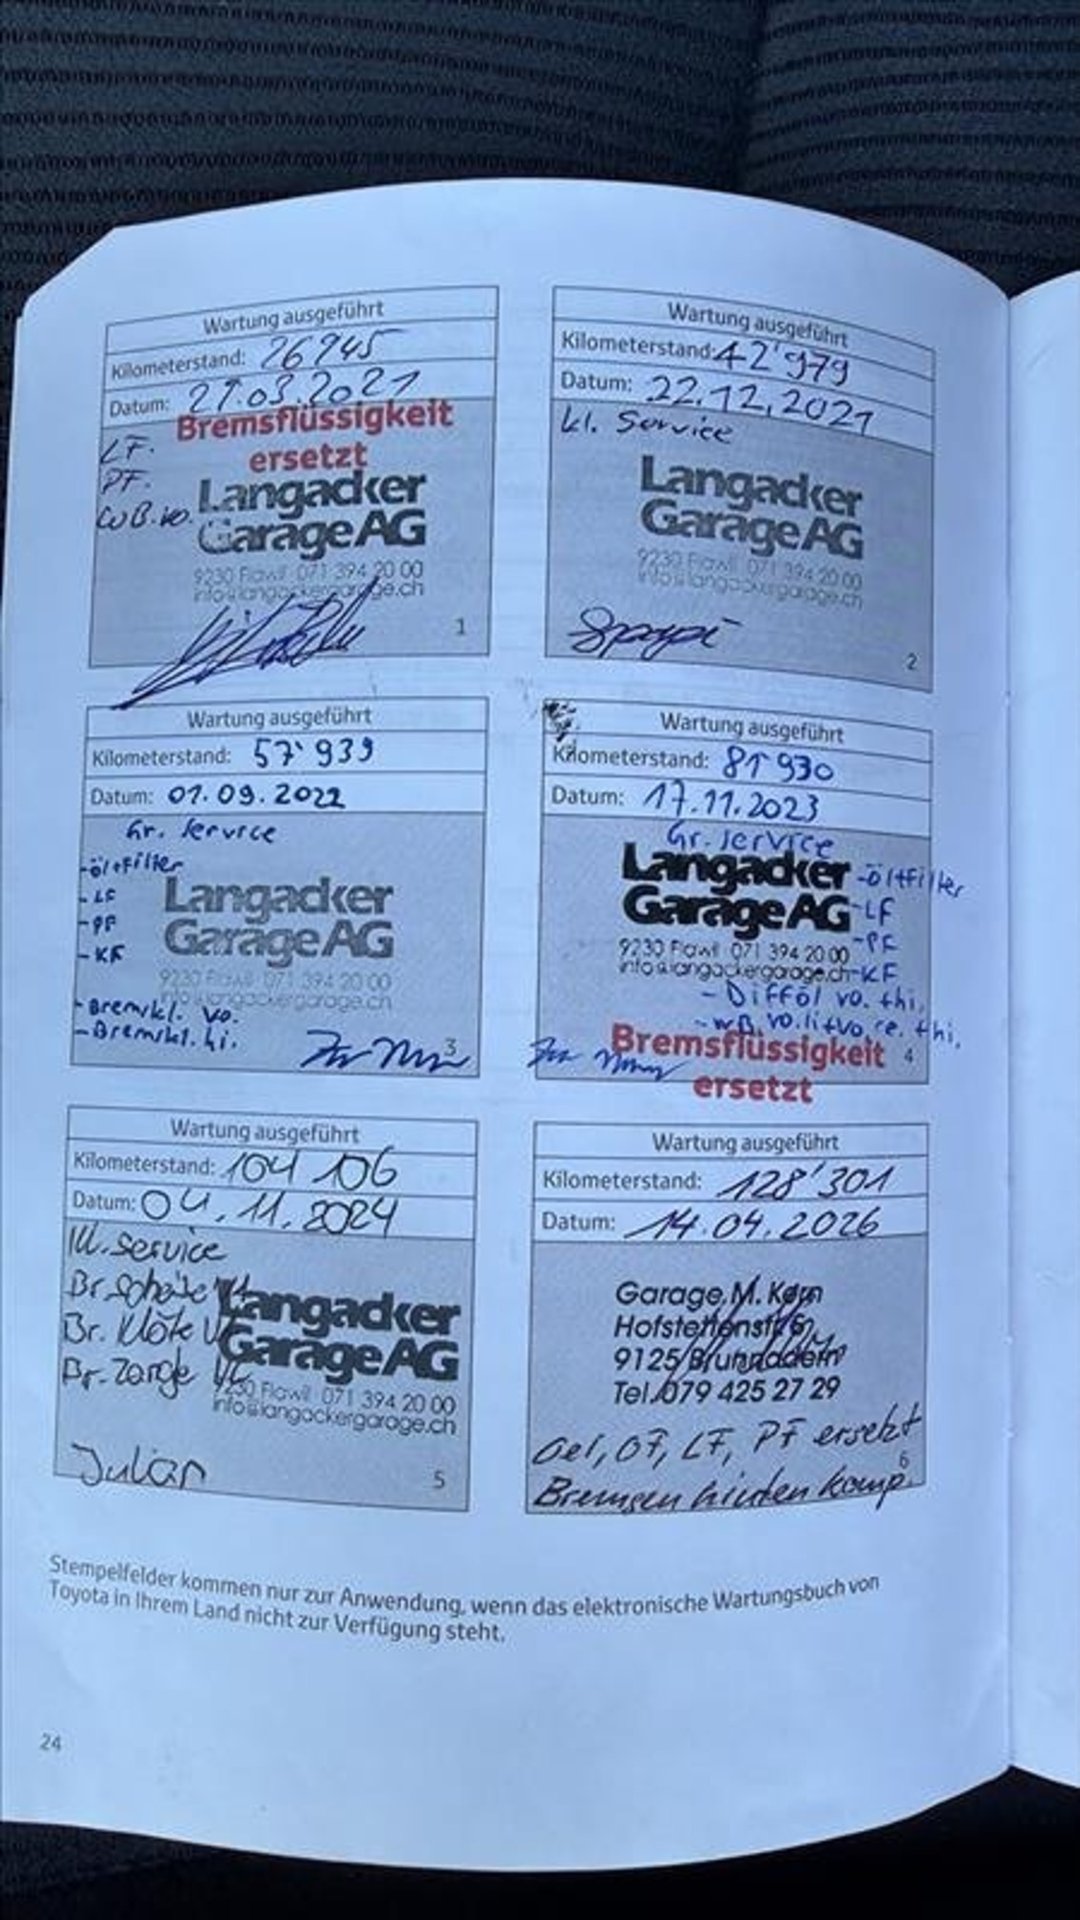 Wartung ausgeführt
Kilometerstand: 26945
Datum: 27.03.2021
Bremsflüssigkeit
ersetzt
LF.
PF.
WB.vo.
Langacker
Garage AG
9230 Flawil 071 394 20 00
info@langackergarage.ch
1
Wartung ausgeführt
Kilometerstand: 42'979
Datum: 22.12.2021
kl. Service
Langacker
Garage AG
9230 Flawil 071 394 20 00
info@langackergarage.ch
2
Wartung ausgeführt
Kilometerstand: 57'939
Datum: 01.09.2022
Gr. Service
-öl+Filter
- LF
- PF
- KF
Langacker
Garage AG
9230 Flawil 071 394 20 00
info@langackergarage.ch
- Bremskl. vo.
- Bremskl. hi.
3
Wartung ausgeführt
Kilometerstand: 81'930
Datum: 17.11.2023
Gr. Service
Langacker
Garage AG
9230 Flawil 071 394 20 00
info@langackergarage.ch
-Öl+Filter
-LF
-PF
-KF
- Difföl vo. +hi.
- WB. vo.li+vo.re. +hi.
Bremsflüssigkeit
ersetzt
4
Wartung ausgeführt
Kilometerstand: 104 106
Datum: 04.11.2024
Kl. Service
Br. Scheibe
Br. Klötze
Br. Zange
Langacker
Garage AG
9230 Flawil 071 394 20 00
info@langackergarage.ch
Julian
5
Wartung ausgeführt
Kilometerstand: 128'301
Datum: 14.04.2026
Garage M. Kern
9125 Brunnadern
Tel. 079 425 27 29
Oel, OF, LF, PF ersetzt
Bremsen hinten komp.
6
Stempelfelder kommen nur zur Anwendung, wenn das elektronische Wartungsbuch von
Toyota in Ihrem Land nicht zur Verfügung steht.
24